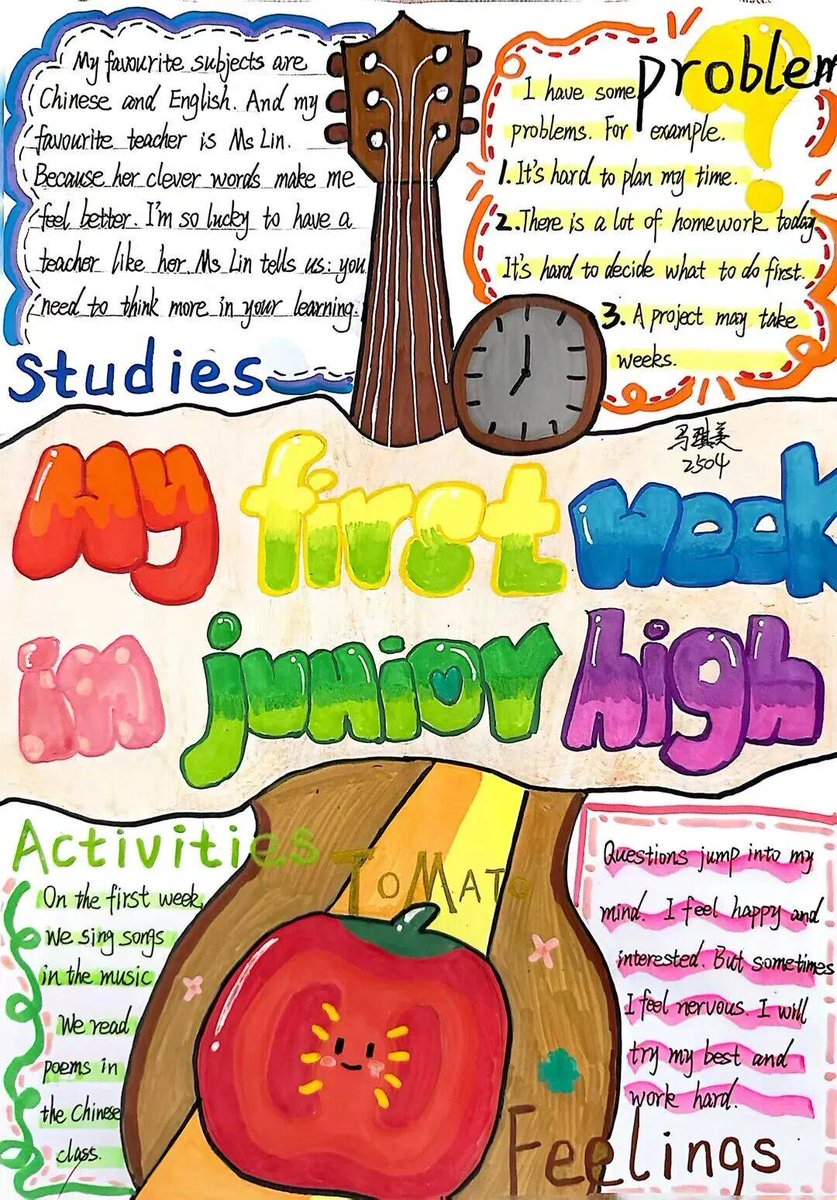 My favourite subjects are
Chinese and English. And my
favourite teacher is Ms Lin.
Because her clever words make me
feel better. I'm so lucky to have a
teacher like her. Ms Lin tells us: you
need to think more in your learning.
Studies
problem
I have some
problems. For example.
1. It's hard to plan my time.
2. There is a lot of homework today
It's hard to decide what to do first.
3. A project may take
weeks.
马琪美
2504
My first week
in junior high
Activities
On the first week,
we sing songs
in the music
We read
poems in
the Chinese
class.
TOMATO
Questions jump into my
mind. I feel happy and
interested. But sometimes
I feel nervous. I will
try my best and
work hard.
Feelings